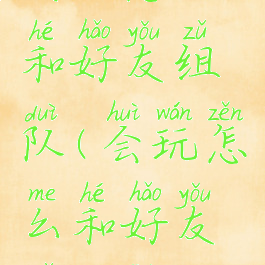 hé hǎo yǒu zǔ
和好友组
duì huì wán zěn
队(会玩怎
me hé hǎo yǒu
么和好友